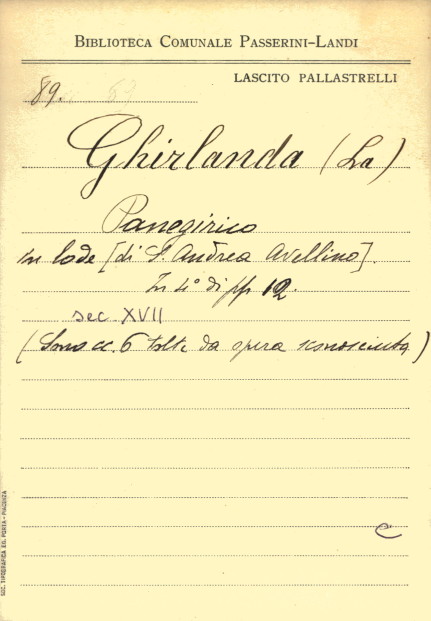 BIBLIOTECA COMUNALE PASSERINI-LANDI
LASCITO PALLASTRELLI
89. 59
Ghirlanda (La)
Panegirico
In lode [di S. Andrea Avellino].
In 4° di pp 12.
sec XVII
(Sono cc. 6 tolte da opera sconosciuta)
C
SOC. TIPOGRAFICA ED. PORTA - PIACENZA